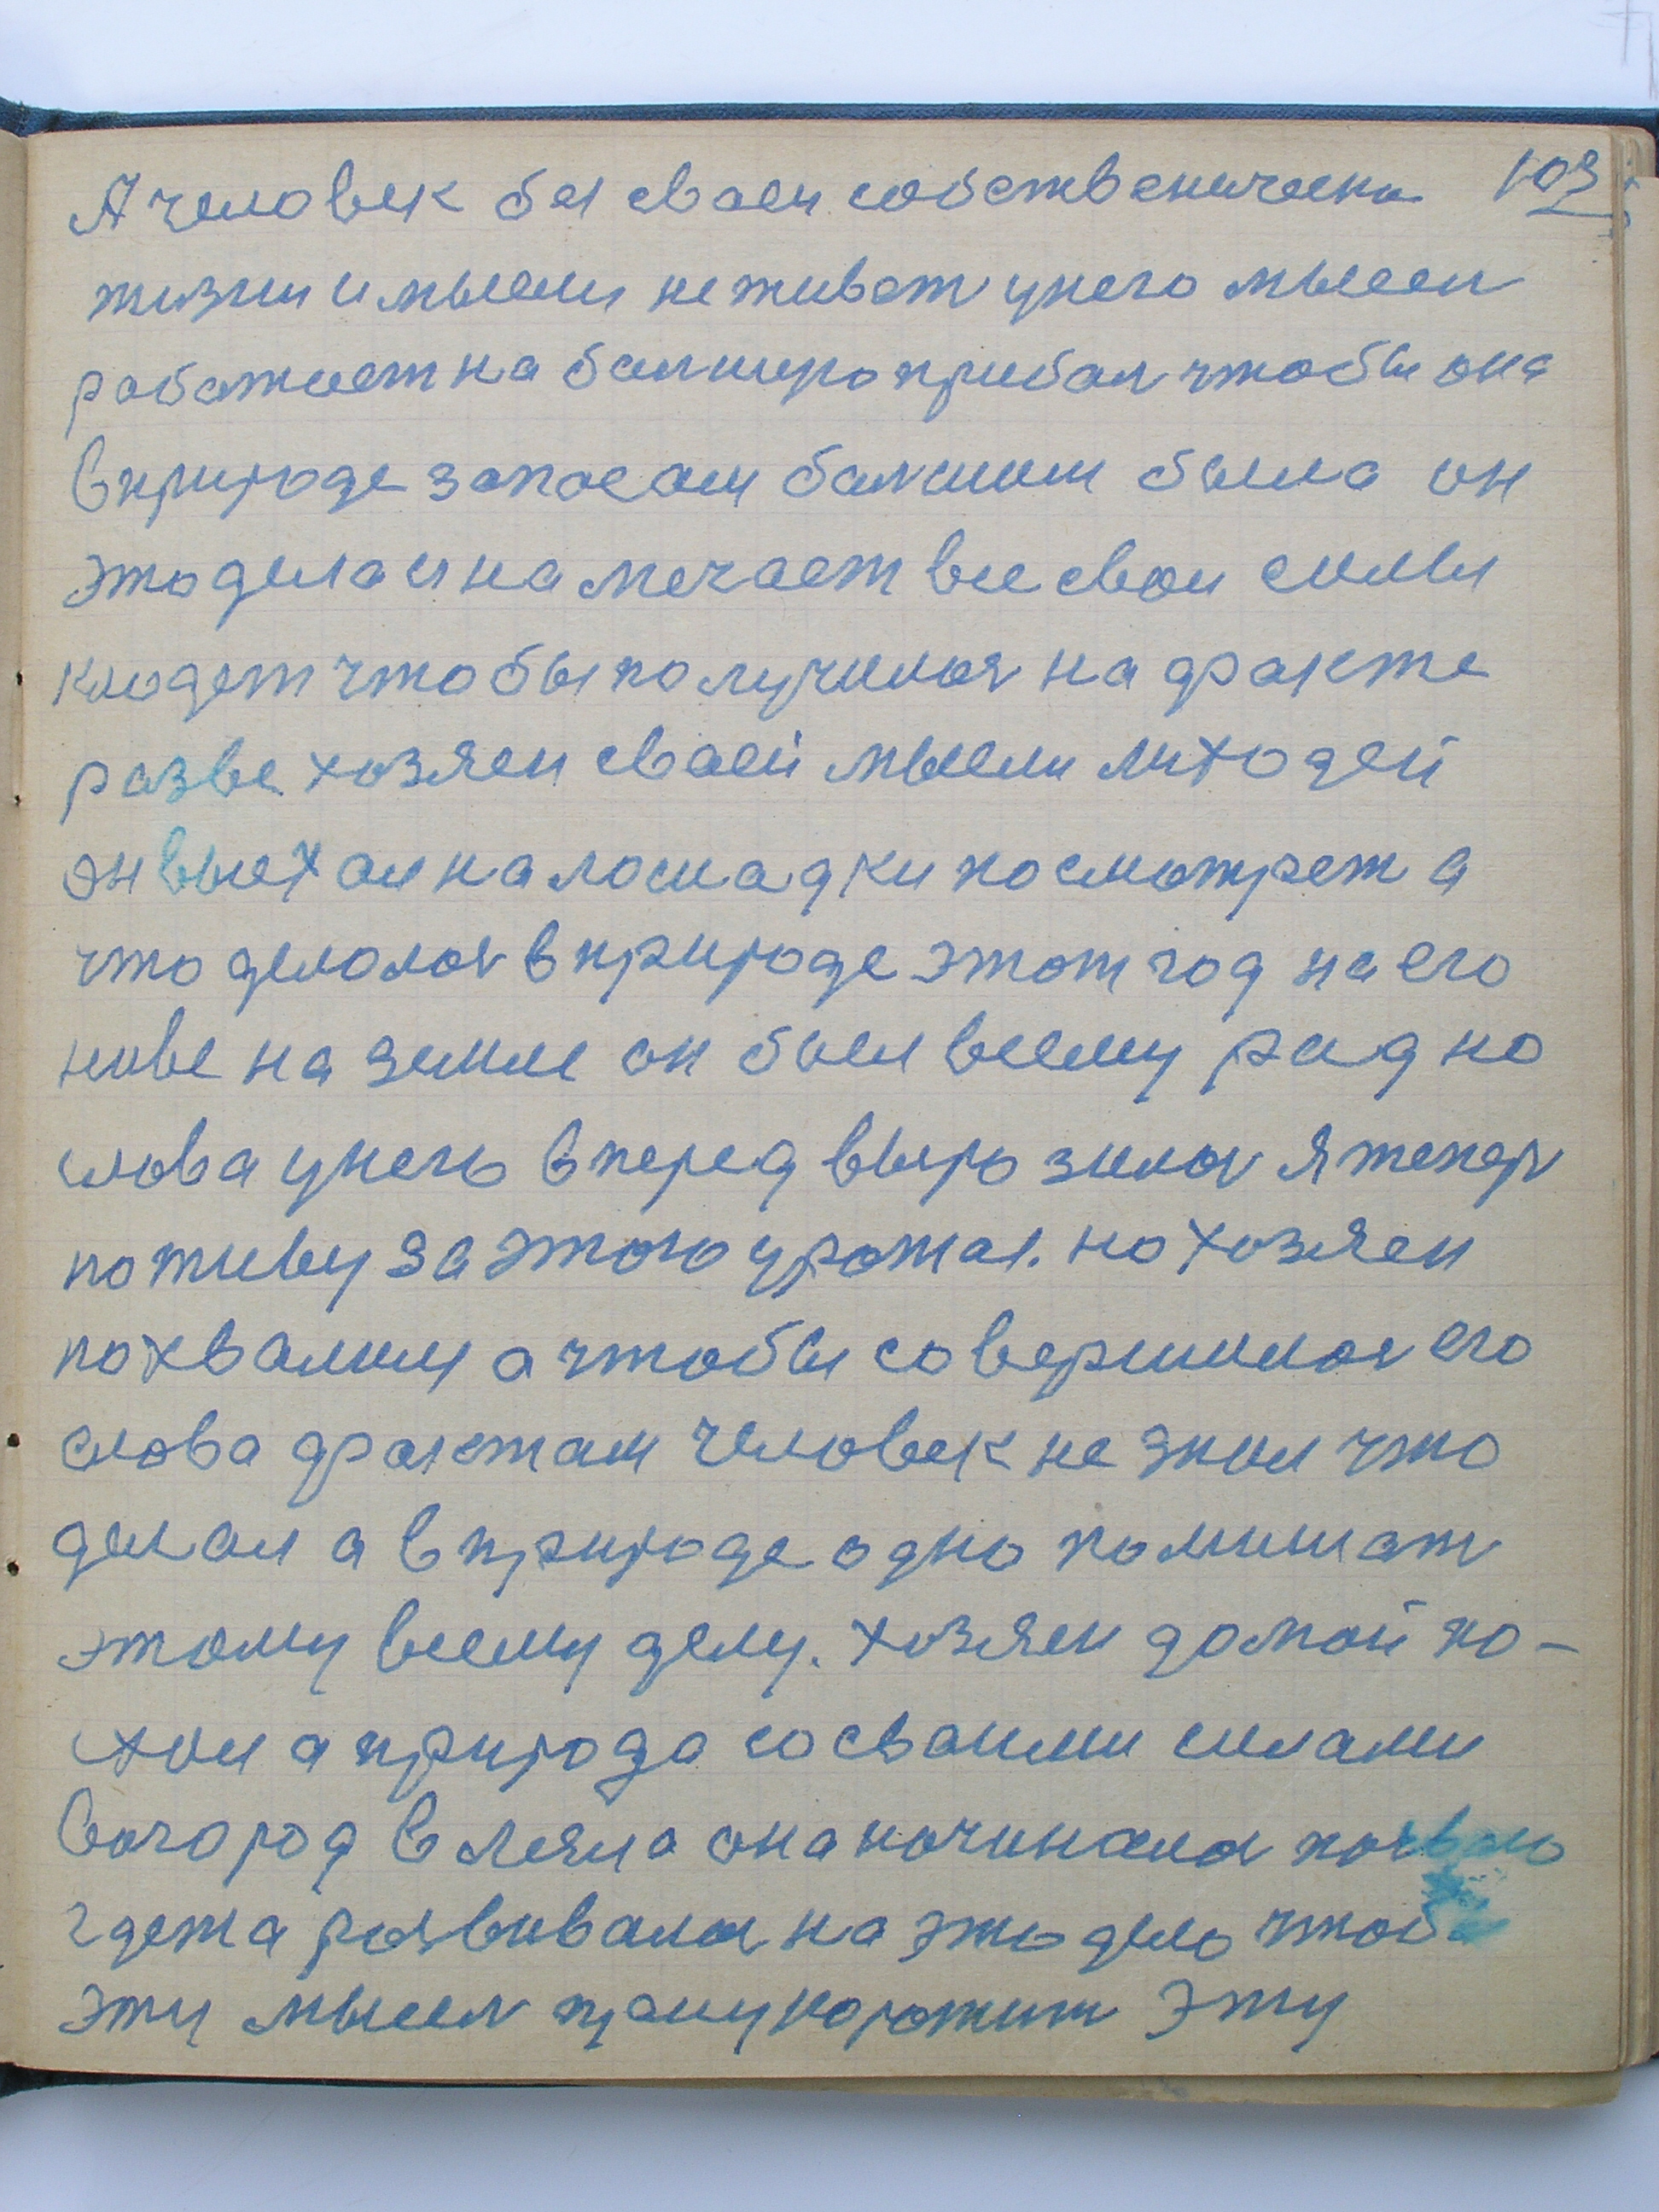 А человек без сваеи собственическы 103
жизни и мысели не живет у него мысел
работает на балшую прибал чтобы она
в природе запосам балшим была он
это дела и на мечает все свои силы
кладет чтобы получилоя на факте
разве хозяен сваей мысели лиходей
он выехал на лошадки посмотрет а
что делолос в природе этот год на его
ниве на земле он был всему рад но
слова у него вперед выразилос я тепер
поживу за этого урожая. но хозяен
похвалил а чтобы совершилос его
слова фактам человек не знал что
делал а в природе одно помишат
этому всему делу. хозяен домой по-
ехал а природа со сваими силами
вогород влезла она начиналас
где та розвивалас на это дело чтоб
эту мысел приунорожит эту